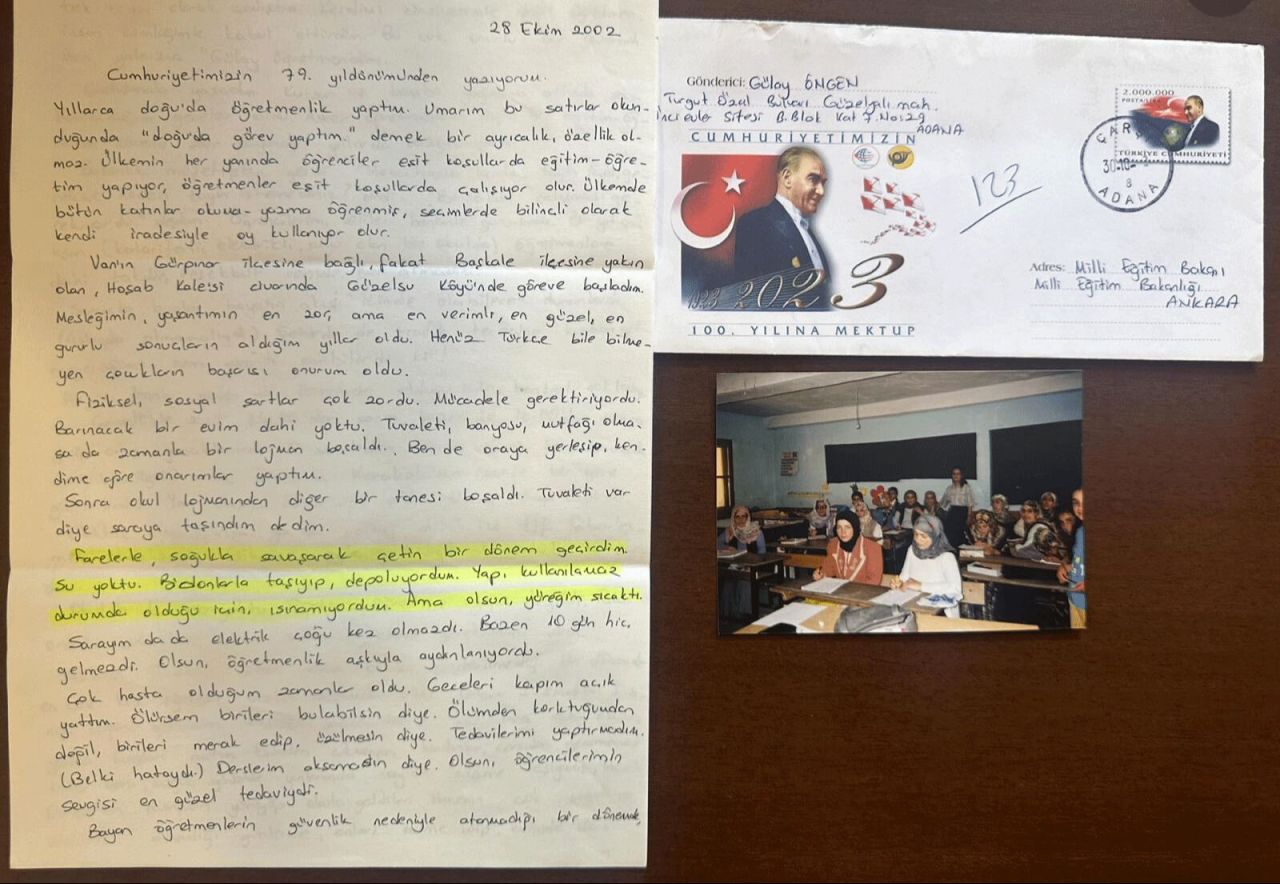 28 Ekim 2002
Cumhuriyetimizin 79. yıldönümünden yazıyorum.
Yıllarca doğu'da öğretmenlik yaptım. Umarım bu satırlar okun-
duğunda "doğu'da görev yaptım." demek bir ayrıcalık, özellik ol-
maz. Ülkemin her yanında öğrenciler eşit koşullarda eğitim-öğre-
tim yapıyor, öğretmenler eşit koşullarda çalışıyor olur. Ülkemde
bütün kadınlar okuma-yazma öğrenmiş, seçimlerde bilinçli olarak
kendi iradesiyle oy kullanıyor olur.
Van'ın Gürpınar ilçesine bağlı, fakat Başkale ilçesine yakın
olan, Hoşab Kalesi civarında Güzelsu Köyü'nde göreve başladım.
Mesleğimin, yaşantımın en zor, ama en verimli, en güzel, en
gururlu sonuçların aldığım yıllar oldu. Henüz Türkçe bile bilme-
yen çocukların başarısı onurum oldu.
Fiziksel, sosyal şartlar çok zordu. Mücadele gerektiriyordu.
Barınacak bir evim dahi yoktu. Tuvaleti, banyosu, mutfağı olma-
sa da zamanla bir lojman boşaldı. Ben de oraya yerleşip, ken-
dime göre onarımlar yaptım.
Sonra okul lojmanından diğer bir tanesi boşaldı. Tuvaleti var
diye saraya taşındım dedim.
Farelerle, soğukla savaşarak çetin bir dönem geçirdim.
Su yoktu. Bidonlarla taşıyıp, depoluyordum. Yapı kullanılamaz
durumda olduğu için, ısınamıyordum. Ama olsun, yüreğim sıcaktı.
Sarayım da da elektrik çoğu kez olmazdı. Bazen 10 gün hiç
gelmezdi. Olsun, öğretmenlik aşkıyla aydınlanıyordu.
Çok hasta olduğum zamanlar oldu. Geceleri kapım açık
yattım. Ölürsem birileri bulabilsin diye. Ölümden korktuğumdan
değil, birileri merak edip, üzülmesin diye. Tedavilerimi yaptırmadım.
(Belki hataydı.) Derslerim aksamasın diye. Olsun, öğrencilerimin
sevgisi en güzel tedaviydi.
Bayan öğretmenlerin güvenlik nedeniyle atanmadığı bir dönemde,
Gönderici: Gülay ÖNGEN
Turgut Özal Bulvarı Güzelyalı mah.
İnci evler Sitesi B.Blok Kat 7 No:29
ADANA
CUMHURİYETİMİZİN
1923 2023
100. YILINA MEKTUP
123
2.000.000
POSTA
TÜRKİYE CUMHURİYETİ
30-10-
8
ADANA
Adres: Milli Eğitim Bakanı
Milli Eğitim Bakanlığı
ANKARA